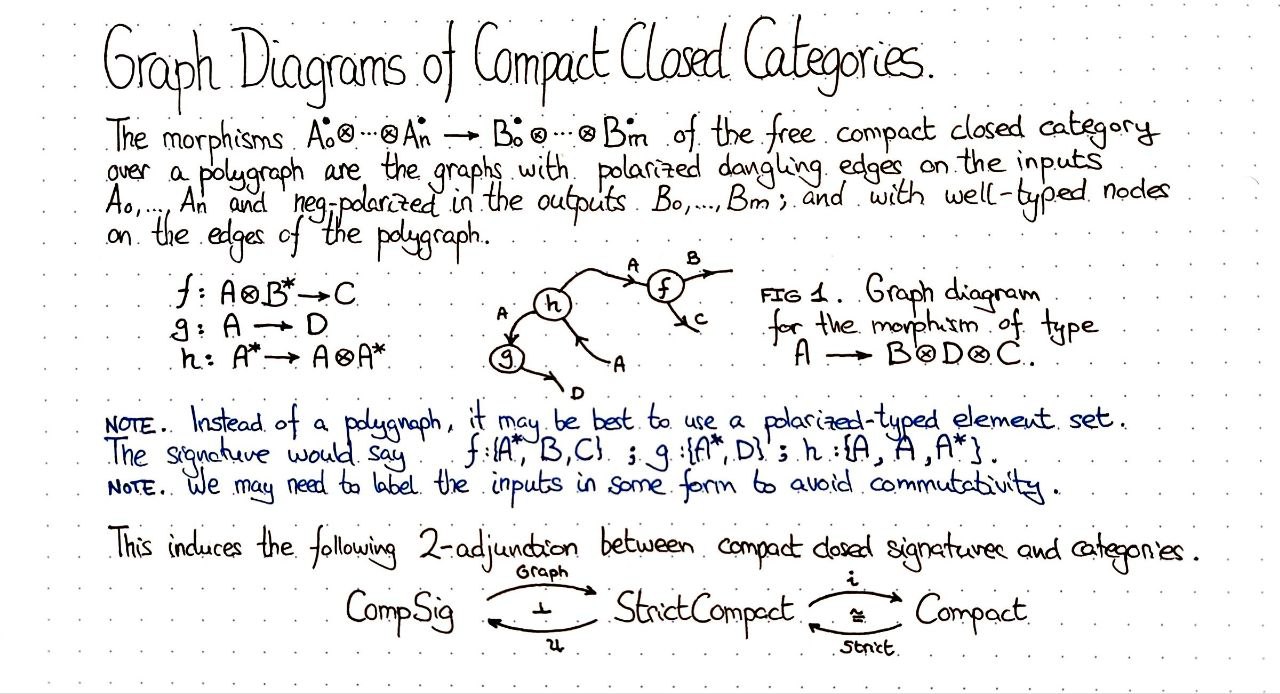 Graph Diagrams of Compact Closed Categories.
The morphisms A₀•⊗···⊗Aₙ• → B₀•⊗···⊗Bₘ• of the free compact closed category
over a polygraph are the graphs with polarized dangling edges on the inputs
A₀,..., Aₙ and neg-polarized in the outputs B₀,..., Bₘ; and with well-typed nodes
on the edges of the polygraph.
f: A⊗B*→C
g: A → D
h: A* → A⊗A*
A
B
f
C
h
A
g
A
D
FIG 1. Graph diagram
for the morphism of type
A → B⊗D⊗C.
NOTE. Instead of a polygraph, it may be best to use a polarized-typed element set.
The signature would say f:{A*, B, C} ; g:{A*, D} ; h:{A, A, A*}.
NOTE. We may need to label the inputs in some form to avoid commutativity.
This induces the following 2-adjunction between compact closed signatures and categories.
Graph
i
CompSig ⊥ StrictCompact ≅ Compact
U
Strict